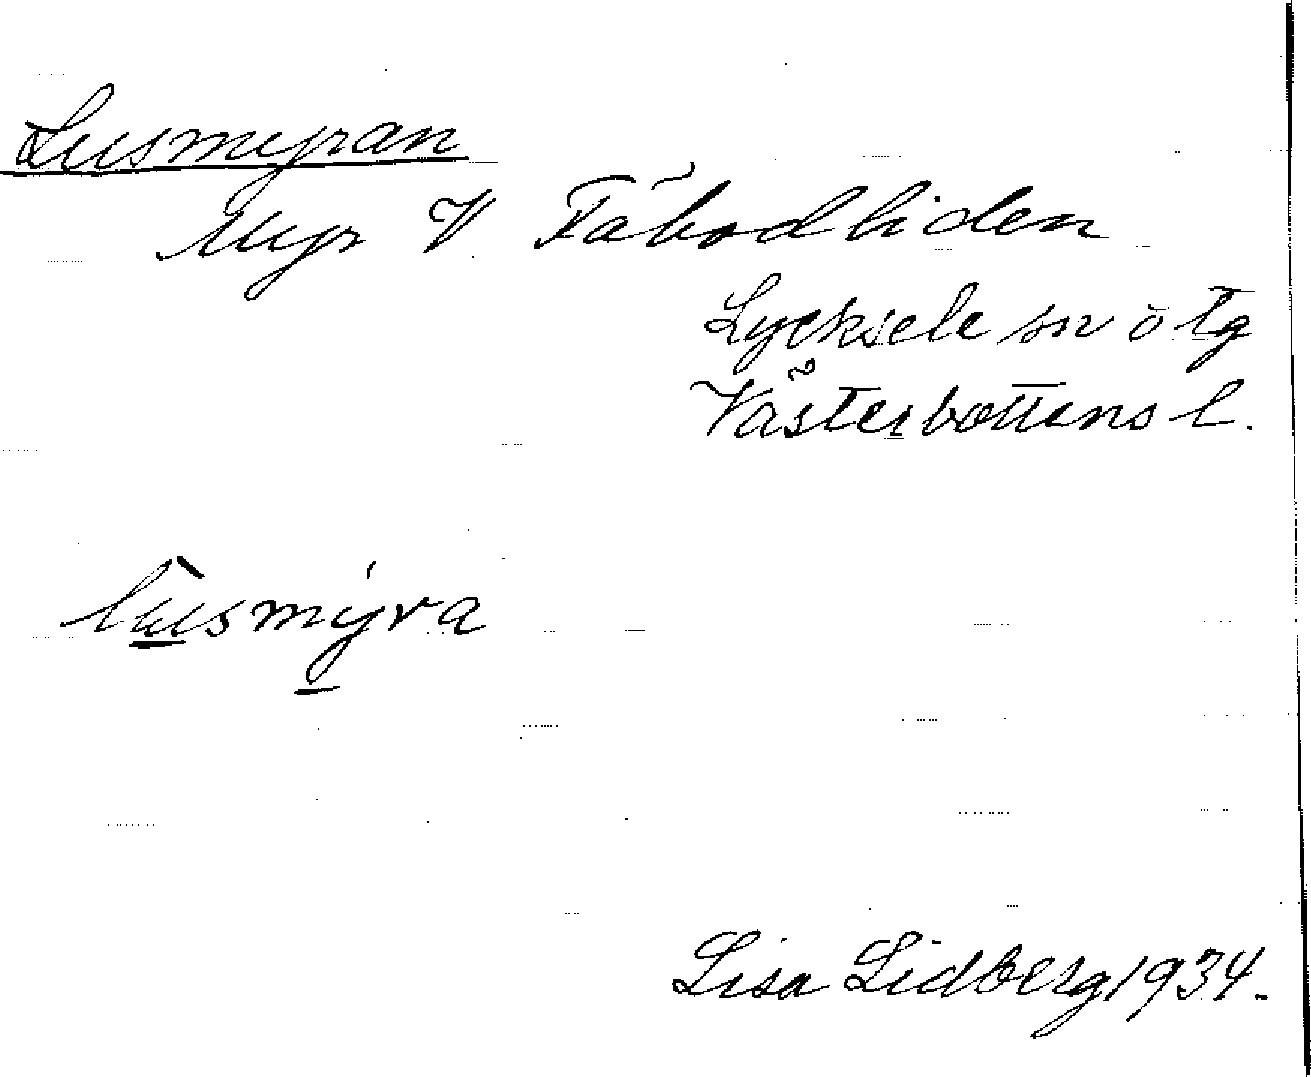 Lusmyran
Myr V Fäbodliden
Lycksele sn o tg
Västerbottens l.
lùsmýra
Lisa Lidberg 1934.